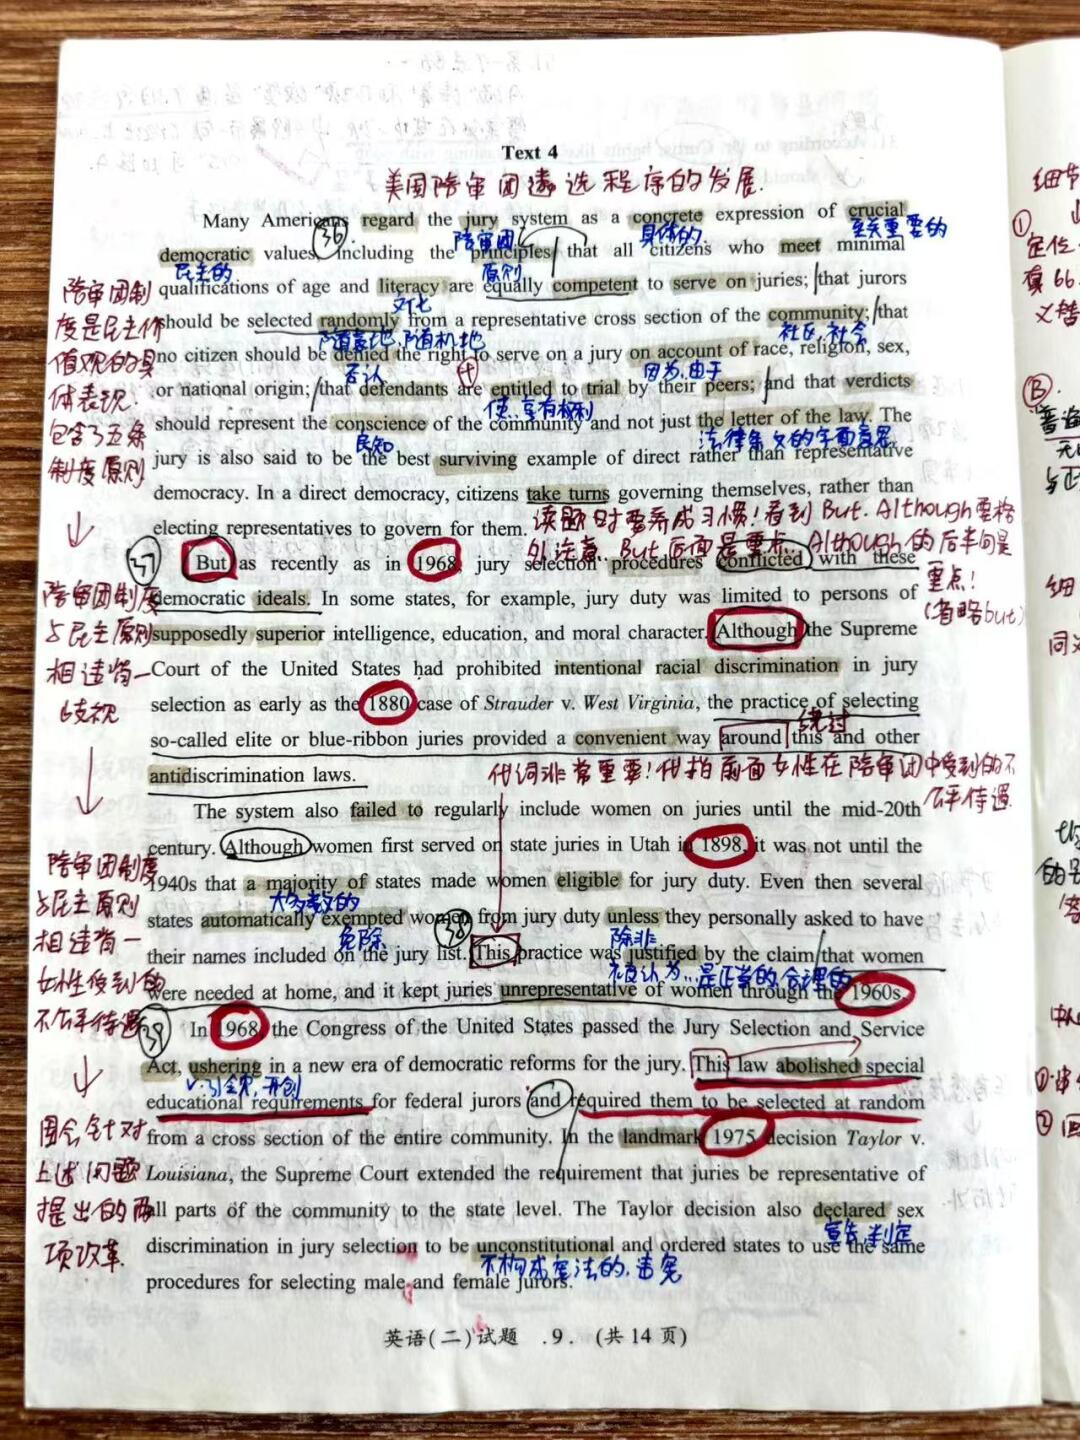 Text 4
美国陪审团遴选程序的发展.
Many Americans regard the jury system as a concrete expression of crucial
36
陪审团
具体的.
至关重要的
democratic values, including the principles that all citizens who meet minimal
民主的
原则
qualifications of age and literacy are equally competent to serve on juries; that jurors
文化
should be selected randomly from a representative cross section of the community; that
随意地,随机地
社区,社会
no citizen should be denied the right to serve on a jury on account of race, religion, sex,
否认
因为,由于
or national origin; that defendants are entitled to trial by their peers; and that verdicts
使..享有权利
should represent the conscience of the community and not just the letter of the law. The
良知
法律条文的字面意思
jury is also said to be the best surviving example of direct rather than representative
democracy. In a direct democracy, citizens take turns governing themselves, rather than
electing representatives to govern for them.
读题时要养成习惯!看到But. Although要格
外注意. But后面是重点. Although的后半句是
重点!
(省略but)
陪审团制
度是民主价
值观的具
体表现.
包含了五条
制度原则
37
But as recently as in 1968, jury selection procedures conflicted with these
democratic ideals. In some states, for example, jury duty was limited to persons of
supposedly superior intelligence, education, and moral character. Although the Supreme
Court of the United States had prohibited intentional racial discrimination in jury
selection as early as the 1880 case of Strauder v. West Virginia, the practice of selecting
绕过
so-called elite or blue-ribbon juries provided a convenient way around this and other
antidiscrimination laws.
陪审团制度
与民主原则
相违背一
歧视
代词非常重要!代指前面女性在陪审团中受到的不
公平待遇
The system also failed to regularly include women on juries until the mid-20th
century. Although women first served on state juries in Utah in 1898, it was not until the
1940s that a majority of states made women eligible for jury duty. Even then several
大多数的
states automatically exempted women from jury duty unless they personally asked to have
免除
38
除非
their names included on the jury list. This practice was justified by the claim that women
被认为...是正常的,合理的
were needed at home, and it kept juries unrepresentative of women through the 1960s.
陪审团制度
与民主原则
相违背一
女性受到的
不公平待遇
39
In 1968, the Congress of the United States passed the Jury Selection and Service
Act, ushering in a new era of democratic reforms for the jury. This law abolished special
v.引领,开创
educational requirements for federal jurors and required them to be selected at random
from a cross section of the entire community. In the landmark 1975 decision Taylor v.
Louisiana, the Supreme Court extended the requirement that juries be representative of
all parts of the community to the state level. The Taylor decision also declared sex
宣告,判定
discrimination in jury selection to be unconstitutional and ordered states to use the same
不构成宪法的.违宪
procedures for selecting male and female jurors.
国会针对
上述问题
提出的两
项改革.
英语(二)试题 .9. (共14页)
细节
①
定位
B.
细
同义